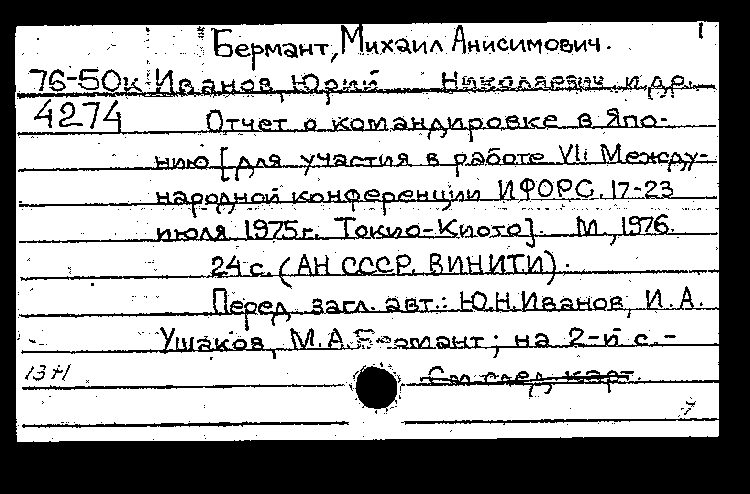 1
Бермант, Михаил Анисимович.
76-50к Иванов, Юрий Николаевич и др.
4274 Отчет о командировке в Япо-
нию [для участия в работе VII Между-
народной конференции ИФОРС. 17-23
июля 1975г. Токио-Киото]. М., 1976.
24 с. (АН СССР. ВИНИТИ).
Перед загл. авт.: Ю.Н.Иванов, И.А.
Ушаков, М.А.Бермант; на 2-й с.-
См след карт.